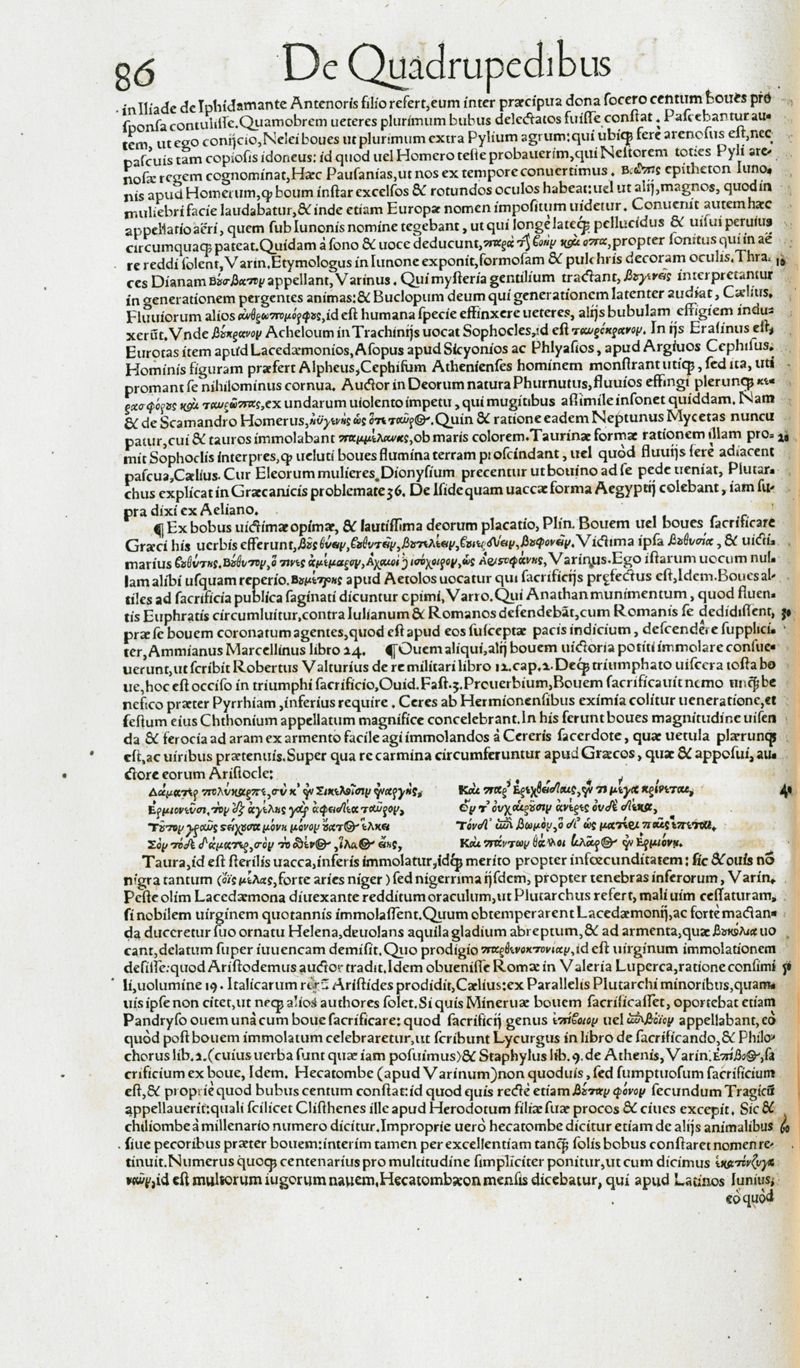 86 De Quadrupedibus
in Iliade de Iphidamante Antenoris filio refert, eum inter præcipua dona socero centum boues pro
sponsa contulisse. Quamobrem ueteres plurimum bubus delectatos fuisse constat. Pascebantur au-
tem, ut ego conijcio, Nelei boues ut plurimum extra Pylium agrum: qui ubiq; ferè arenosus est, nec
pascuis tam copiosis idoneus: id quod uel Homero teste probauerim, qui Nestorem toties Pyli are-
nosæ regem cognominat, Hæc Pausanias, ut nos ex tempore conuertimus. Βοῶπις epitheton Iuno-
nis apud Homerum, q; boum instar excelsos & rotundos oculos habeat: uel ut alij, magnos, quod in
muliebri facie laudabatur, & inde etiam Europæ nomen impositum uidetur. Conuenit autem hæc
appellatio aëri, quem sub Iunonis nomine tegebant, ut qui longè lateq; pellucidus & uisui peruius
circumquaq; pateat. Quidam à sono & uoce deducunt, παρὰ τὴν βοὴν καὶ ὄπα, propter sonitus qui in aë
re reddi solent, Varin. Etymologus in Iunone exponit, formosam & pulchris decoram oculis. Thra- 10
ces Dianam Βουσβατον appellant, Varinus. Qui mysteria gentilium tractant, βουγενεῖς interpretantur
in generationem pergentes animas: & Buclopum deum qui generationem latenter audiat, Cælius.
Fluuiorum alios ἀνθρωπομόρφους, id est humana specie effinxere ueteres, alijs bubulam effigiem indu-
xerũt. Vnde βούκρανον Acheloum in Trachinijs uocat Sophocles, id est ταυρόκρανον. In ijs Erasinus est,
Eurotas item apud Lacedæmonios, Asopus apud Sicyonios ac Phlyasios, apud Argiuos Cephisus.
Hominis figuram præfert Alpheus, Cephisum Athenienses hominem monstrant utiq;, sed ita, uti
promant se nihilominus cornua. Auctor in Deorum natura Phurnutus, fluuios effingi plerunq; κε-
ρασφόρους καὶ ταυρώπας, ex undarum uiolento impetu, qui mugitibus assimile insonet quiddam. Nam
& de Scamandro Homerus, ὡς ὅτι ταῦρος. Quin & ratione eadem Neptunus Mycetas nuncu
patur, cui & tauros immolabant παμμέλανας, ob maris colorem. Taurinæ formæ rationem illam pro- 20
mit Sophoclis interpres, q; ueluti boues flumina terram proscindant, uel quòd fluuijs ferè adiacent
pascua, Cælius. Cur Eleorum mulieres, Dionysium precentur ut bouino ad se pede ueniat, Plutar-
chus explicat in Græcanicis problemate 36. De Iside quam uaccæ forma Aegyptij colebant, iam su-
pra dixi ex Aeliano.
¶ Ex bobus uictimæ opimæ, & lautissima deorum placatio, Plin. Bouem uel boues sacrificare
Græci his uerbis efferunt, βοῦς θύειν, βουθυτεῖν, βουφονεῖν. Victima ipsa βουθυσία, & uicti-
marius βουθύτης. Varinus. Ego istarum uocum nul-
lam alibi usquam reperio. apud Aetolos uocatur qui sacrificijs præfectus est, Idem. Boues al-
tiles ad sacrificia publica saginati dicuntur opimi, Varro. Qui Anathan munimentum, quod fluen-
tis Euphratis circumluitur, contra Iulianum & Romanos defendebãt, cum Romanis se dedidissent, 30
præ se bouem coronatum agentes, quod est apud eos susceptæ pacis indicium, descendere supplici-
ter, Ammianus Marcellinus libro 24. ¶ Ouem aliqui, alij bouem uictoria potiti immolare consue-
uerunt, ut scribit Robertus Valturius de re militari libro 12. cap. 2. Deq; triumphato uiscera tosta bo
ue, hoc est occiso in triumphi sacrificio, Ouid. Fast. 3. Prouerbium, Bouem sacrificauit nemo unq; be
nefico præter Pyrrhiam, inferius require. Ceres ab Hermionensibus eximia colitur ueneratione, et
festum eius Chthonium appellatum magnifice concelebrant. In his ferunt boues magnitudine uisen
da & ferocia ad aram ex armento facile agi immolandos à Cereris sacerdote, quæ uetula plærunq;
est, ac uiribus prætenuis. Super qua re carmina circumferuntur apud Græcos, quæ & apposui, au-
ctore eorum Aristocle:
Δάματερ πολύκαρπε, σύ κ᾽ ἦν Σικελοῖσιν ἐναργής, Καὶ παρ᾽ Ἐρεχθείδαις, ἓν τι μέγα κρίνεται, 40
Ἑρμιονεῦσι. τὸν ἐξ ἀγέλης γὰρ ἀφειδέα ταῦρον, Ὃν τ᾽ οὐχ αἱροῦσιν ἀνέρες οὐδὲ δέκα,
Τοῦτον γραῦς στείχουσα μόνη μόνον οὔατος ἕλκει Τόνδ᾽ ἐπὶ βωμὸν, ὁ δ᾽ ὡς ματέρι παῖς ἕπεται.
Σὸν τόδε Δάματερ, σὸν τὸ σθένος, ἵλαος εἴης, Καὶ πάντως θάλλοι κλᾶρος ἐν Ἑρμιόνῃ.
Taura, id est sterilis uacca, inferis immolatur, idq; merito propter infœcunditatem: sic & ouis nõ
nigra tantum (ὄϊς μέλας, forte aries niger) sed nigerrima ijsdem, propter tenebras inferorum, Varin.
Peste olim Lacedæmona diuexante redditum oraculum, ut Plutarchus refert, mali uim cessaturam,
si nobilem uirginem quotannis immolassent. Quum obtemperarent Lacedæmonij, ac fortè mactan-
da duceretur suo ornatu Helena, deuolans aquila gladium abreptum, & ad armenta, quæ βουκόλια uo
cant, delatum super iuuencam demisit. Quo prodigio παρθενοκτονίαν, id est uirginum immolationem
desisse: quod Aristodemus auctor tradit. Idem obuenisse Romæ in Valeria Luperca, ratione consimi 50
li, uolumine 19. Italicarum rerũ Aristides prodidit, Cælius: ex Parallelis Plutarchi minoribus, quam-
uis ipse non citet, ut neq; alios authores solet. Si quis Mineruæ bouem sacrificasset, oportebat etiam
Pandryso ouem unà cum boue sacrificare: quod sacrificij genus ἐπίβοιον uel appellabant, eò
quòd post bouem immolatum celebraretur, ut scribunt Lycurgus in libro de sacrificando, & Philo-
chorus lib. 2. (cuius uerba sunt quæ iam posuimus) & Staphylus lib. 9. de Athenis, Varin. sa
crificium ex boue, Idem. Hecatombe (apud Varinum) non quoduis, sed sumptuosum sacrificium
est, & propriè quod bubus centum constat: id quod quis rectè etiam βούταν φόνον secundum Tragicũ
appellauerit: quali scilicet Clisthenes ille apud Herodotum filiæ suæ procos & ciues excepit. Sic &
chiliombe à millenario numero dicitur. Improprie uerò hecatombe dicitur etiam de alijs animalibus 60
siue pecoribus præter bouem: interim tamen per excellentiam tanq; solis bobus constaret nomen re-
tinuit. Numerus quoq; centenarius pro multitudine simpliciter ponitur, ut cum dicimus ἑκατόνζυγα
ναῦν, id est multorum iugorum nauem. Hecatombæon mensis dicebatur, qui apud Latinos Iunius,
eò quòd